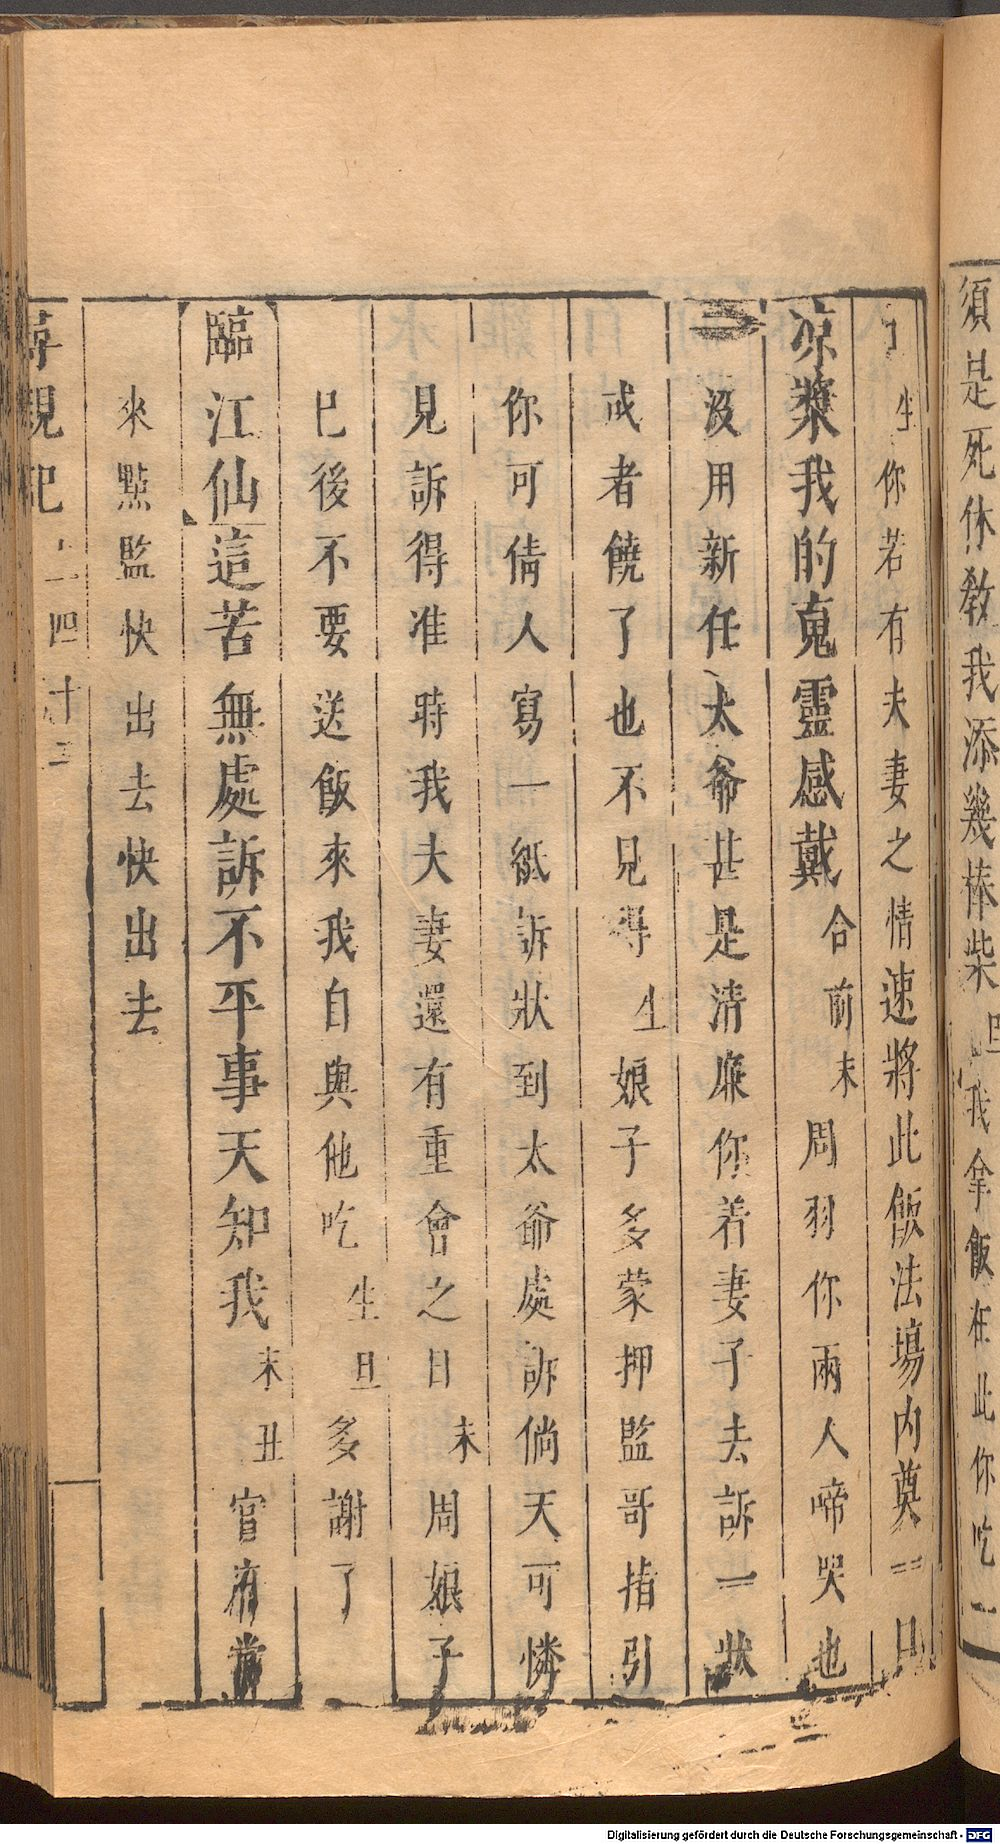 須是死休敎我添幾棒柴旦我拿飯在此你吃一
生你若有夫妻之情速將此飯法塲內奠一
凉漿我的䰟靈感戴合前末周羽你兩人啼哭也
沒用新任太爺甚是清廉你着妻子去訴一狀
或者饒了也不見得生娘子多蒙押監哥指引
你可倩人寫一紙訴狀到太爺處訴倘天可憐
見訴得准時我夫妻還有重會之日末周娘子
已後不要送飯來我自與他吃生旦多謝了
臨江仙這苦無處訴不平事天知我末丑官府當
來點監快出去快出去
尋親記
四十二
Digitalisierung gefördert durch die Deutsche Forschungsgemeinschaft - DFG